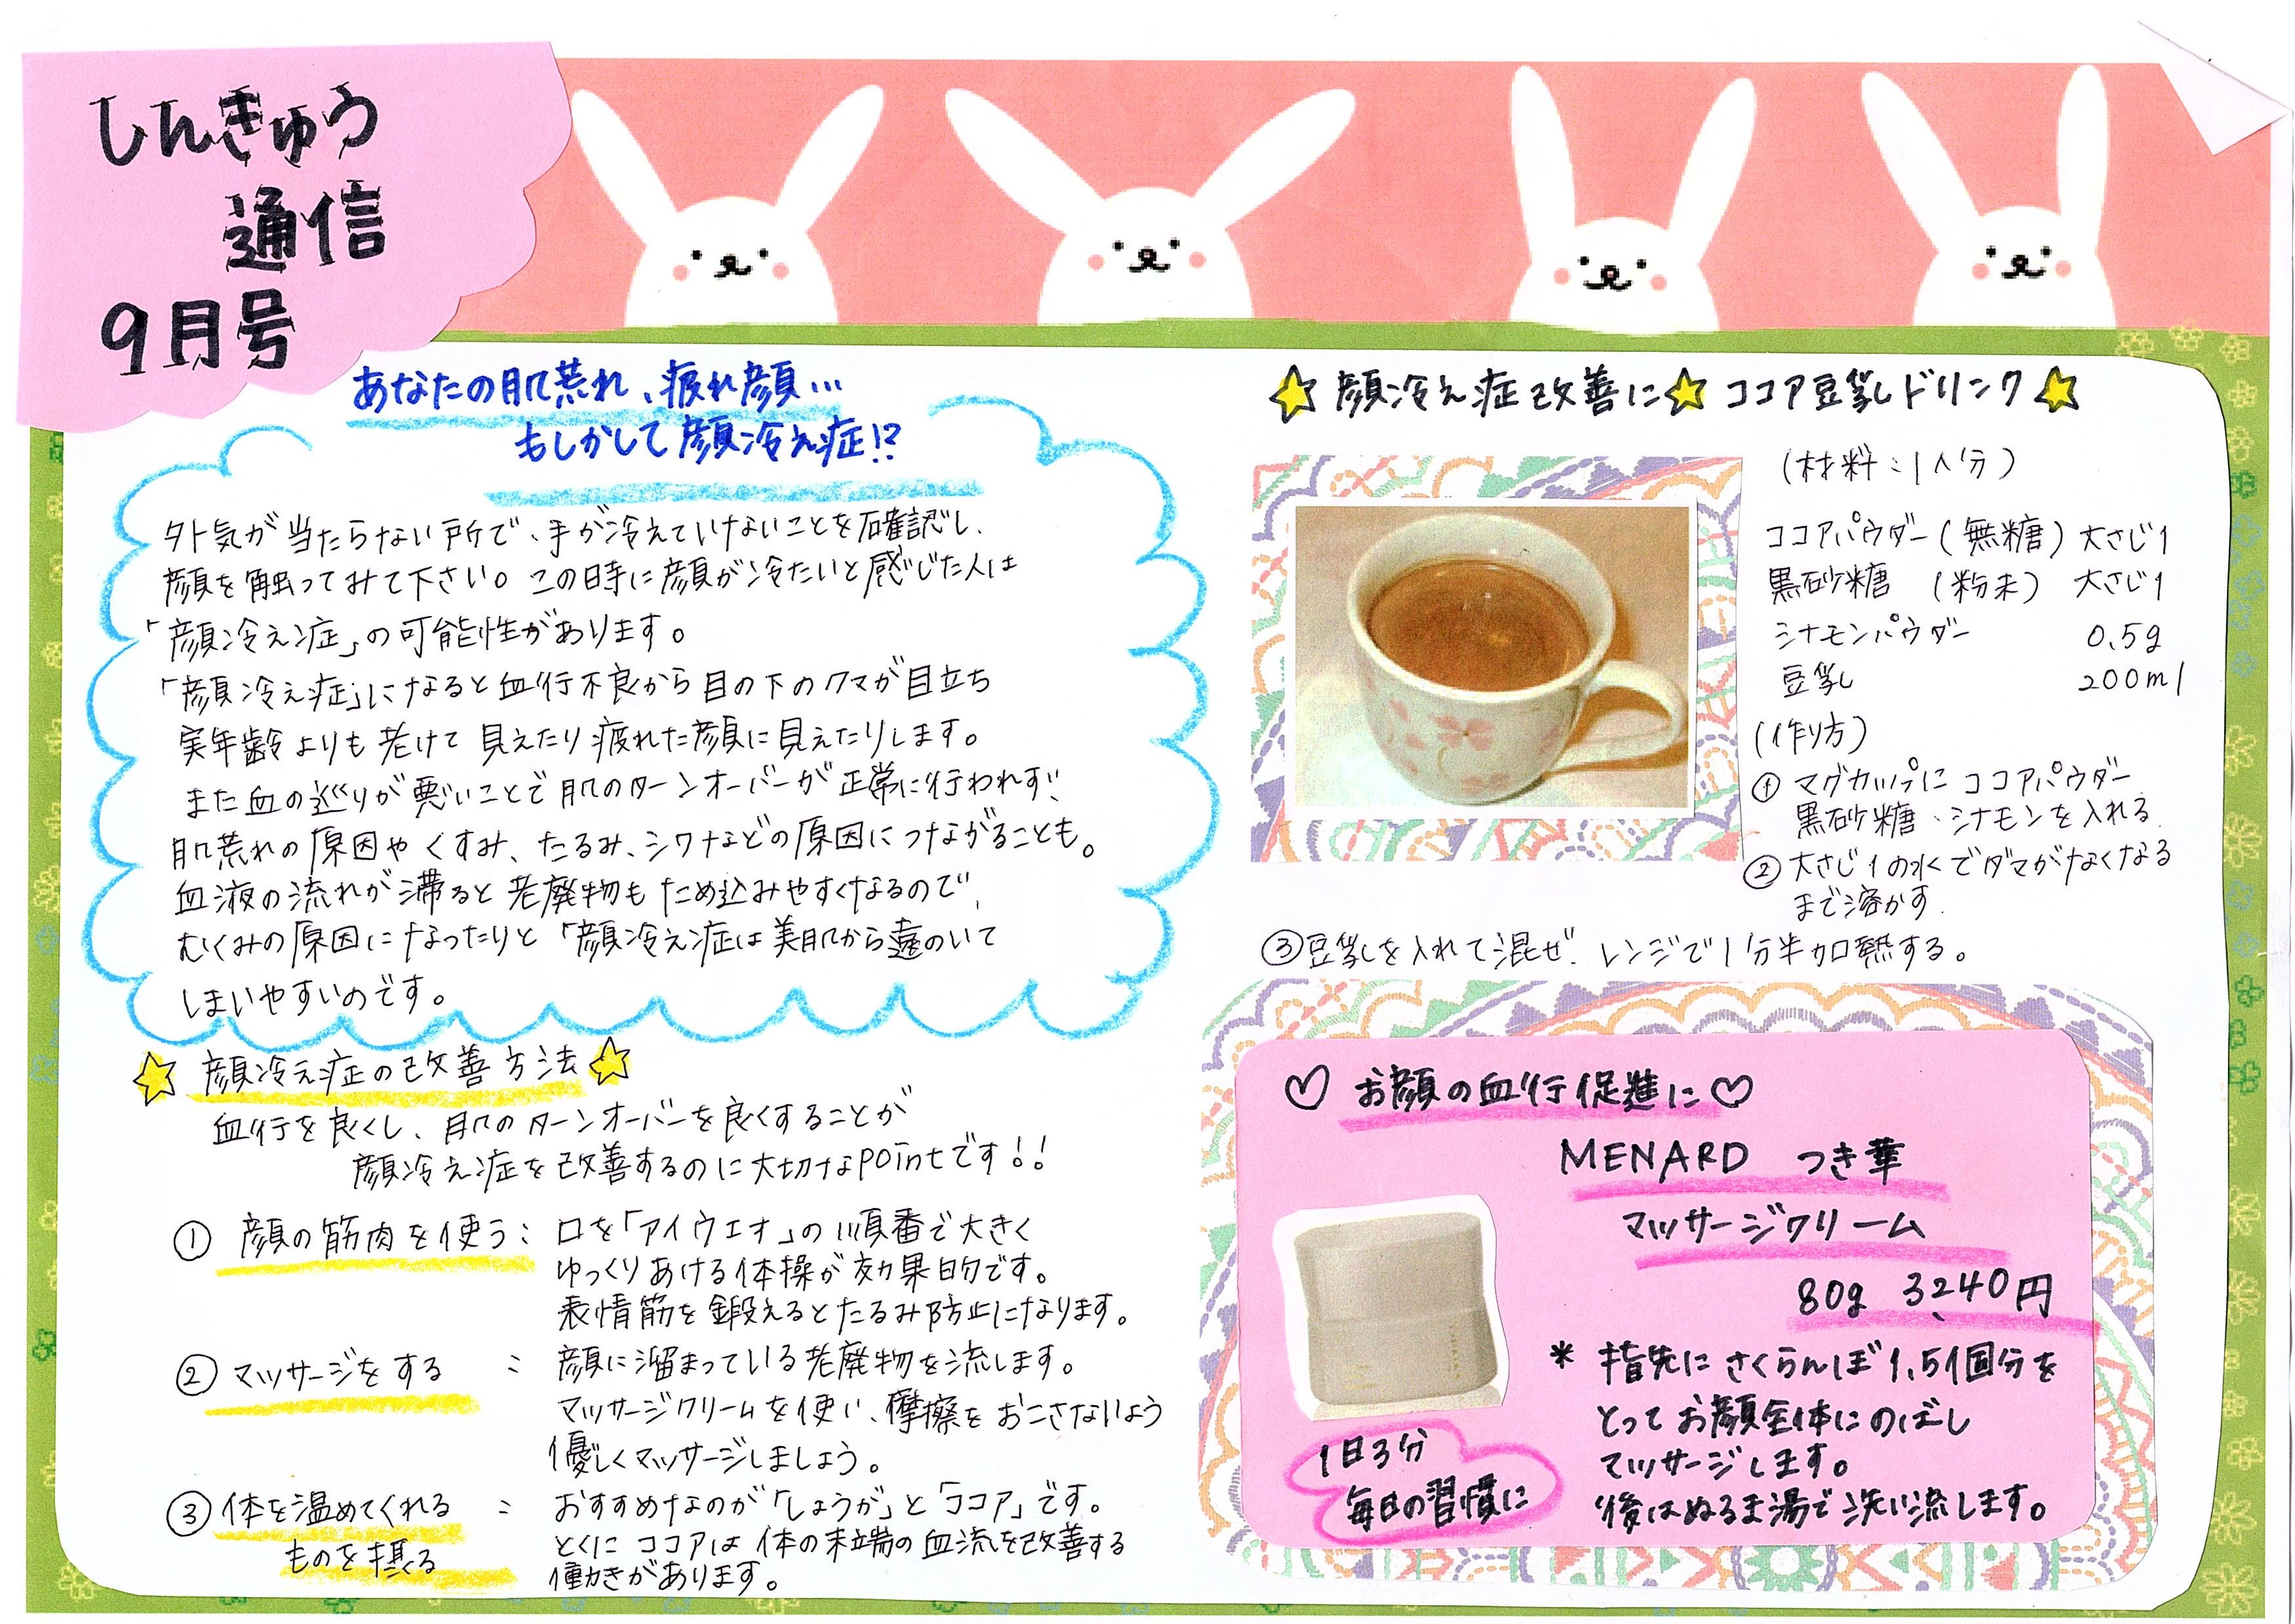 しんきゅう
通信
9月号
あなたの肌荒れ、疲れ顔…
もしかして顔冷え症!?
外気が当たらない所で、手が冷えていけないことを確認し、
顔を触ってみて下さい。この時に顔が冷たいと感じた人は
「顔冷え症」の可能性があります。
「顔冷え症」になると血行不良から目の下のクマが目立ち
実年齢よりも老けて見えたり疲れた顔に見えたりします。
また血の巡りが悪いことで肌のターンオーバーが正常に行われず、
肌荒れの原因やくすみ、たるみ、シワなどの原因につながることも。
血液の流れが滞ると老廃物もため込みやすくなるので、
むくみの原因になったりと「顔冷え症は美肌から遠のいて
しまいやすいのです。
顔冷え症の改善方法
血行を良くし、肌のターンオーバーを良くすることが
顔冷え症を改善するのに大切なpointです!!
① 顔の筋肉を使う: 口を「アイウエオ」の順番で大きく
ゆっくりあける体操が効果的です。
表情筋を鍛えるとたるみ防止になります。
② マッサージをする : 顔に溜まっている老廃物を流します。
マッサージクリームを使い、摩擦をおこさないよう
優しくマッサージしましょう。
③ 体を温めてくれる : おすすめなのが「しょうが」と「ココア」です。
ものを摂る とくにココアは体の末端の血流を改善する
働きがあります。
☆顔冷え症改善に☆ココア豆乳ドリンク☆
(材料:1人分)
ココアパウダー(無糖) 大さじ1
黒砂糖 (粉末) 大さじ1
シナモンパウダー 0.5g
豆乳 200ml
(作り方)
① マグカップにココアパウダー
黒砂糖、シナモンを入れる.
② 大さじ1の水でダマがなくなる
まで溶かす.
③豆乳を入れて混ぜ、レンジで1分半加熱する。
♡ お顔の血行促進に♡
MENARD つき華
マッサージクリーム
80g 3,240円
* 指先にさくらんぼ1.5個分を
とってお顔全体にのばし
マッサージします。
後はぬるま湯で洗い流します。
1日3分
毎日の習慣に